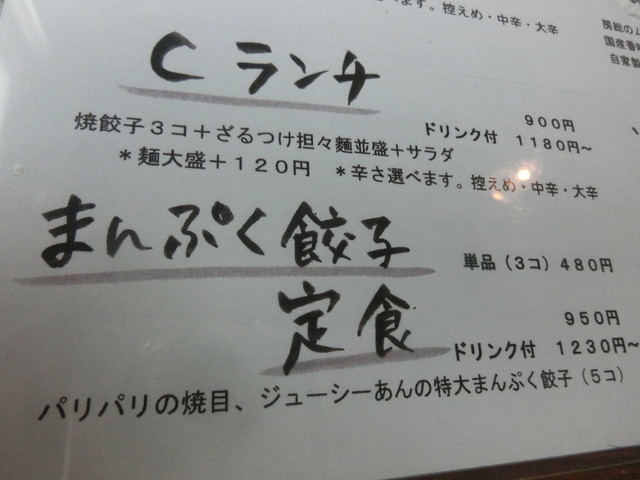 べます。控えめ・中辛・大辛
房総の
国産
自家製
Cランチ
900円
ドリンク付 1180円~
焼餃子3コ+ざるつけ担々麺並盛+サラダ
*麺大盛+120円 *辛さ選べます。控えめ・中辛・大辛
まんぷく餃子
単品(3コ)480円
定食
950円
ドリンク付 1230円~
パリパリの焼目、ジューシーあんの特大まんぷく餃子(5コ)